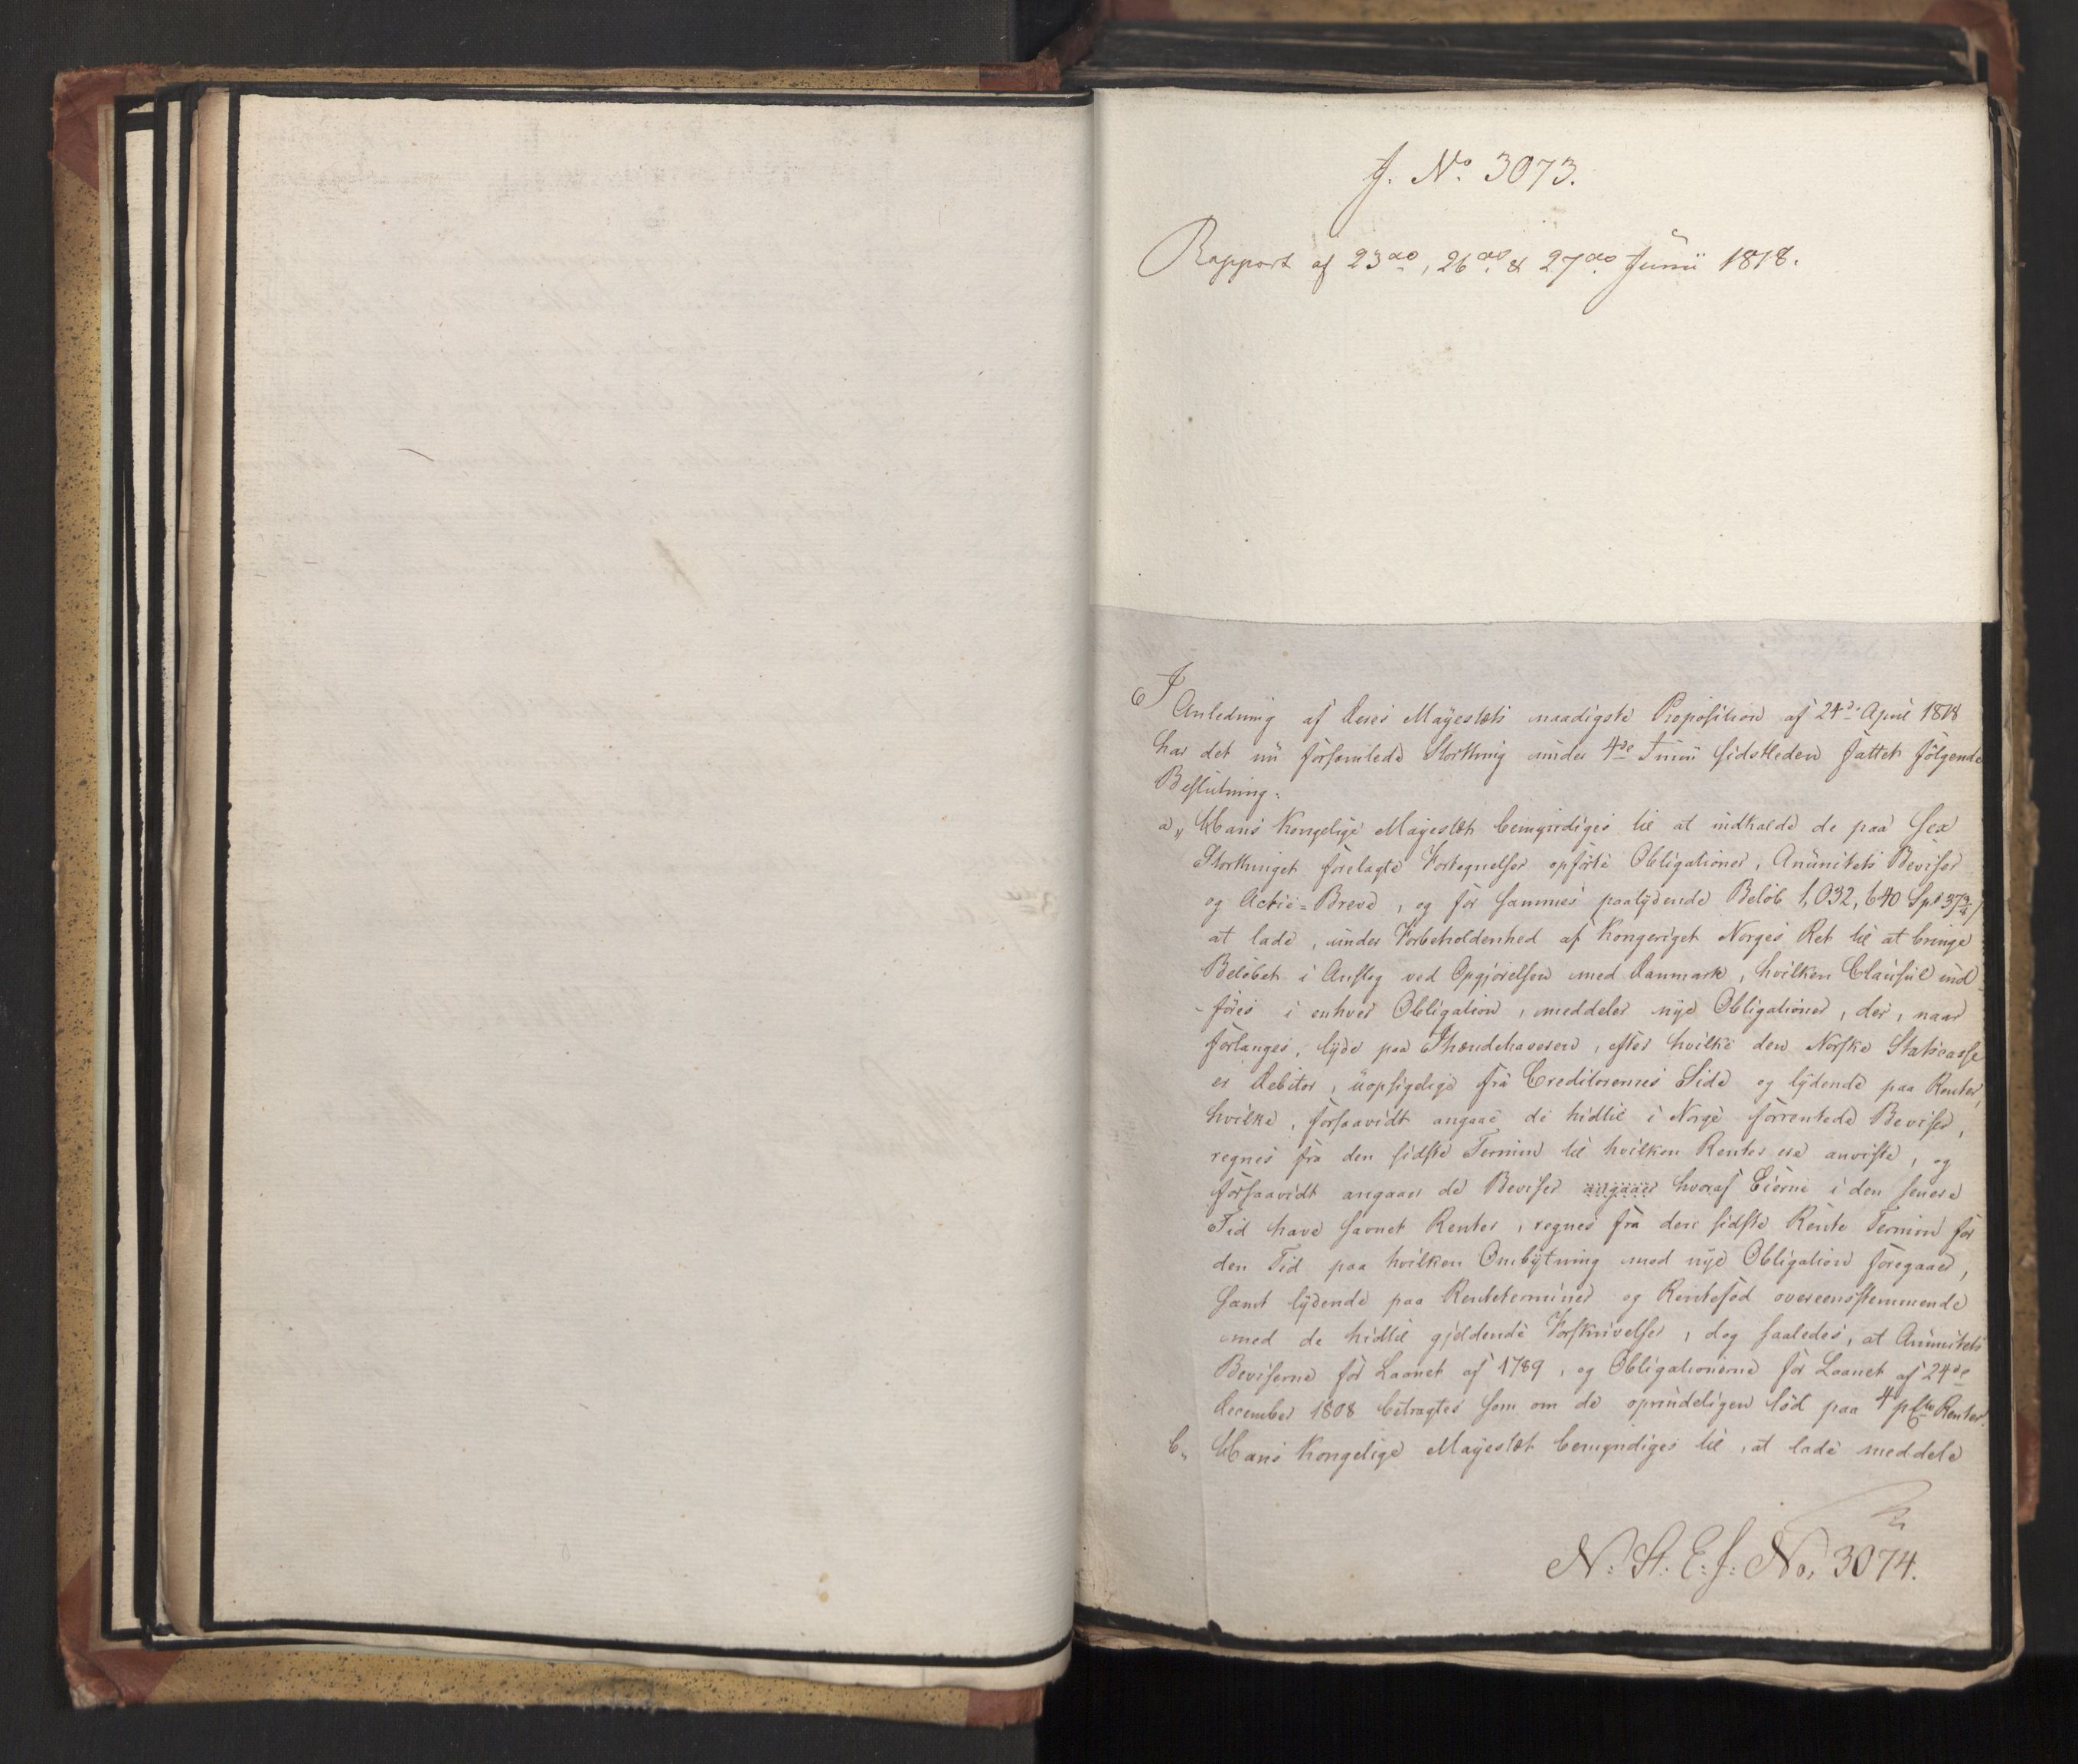 J. No. 3073.
Rapport af 23de, 26de & 27de Junii 1818.
I Anledning af Deres Majestæts naadigste Proposition af 24de April 1818
har det nu forsamlede Storthing under 4de Junii sidstleden fattet følgende
Beslutning:
a„ Hans Kongelige Majestæt bemyndiges til at indkalde de paa sex
Storthinget forelagte Fortegnelser opførte Obligationer, Anuitets Beviser
og Actie=Breve, og for sammes paalydende Beløb 1,032,640 Spd
at lade, under Forbeholdenhed af Kongeriget Norges Ret til at bringe
Beløbet i Anslag ved Opgjørelsen med Danmark, hvilken Clausul ind-
-føres i enhver Obligation, meddeles nye Obligationer, der, naar
forlanges, lyde paa Ihændehaveren, efter hvilke den Norske Statscasse
er Debitor, uopsigelige fra Creditorernes Side og lydende paa Renter,
hvilke, forsaavidt angaae de hidtil i Norge forrentede Beviser,
regnes fra den sidste Termin til hvilken Renter ere anviste, og
forsaavidt angaaer de Beviser angaaer hvoraf Eierne i den senere
Tid have savnet Renter, regnes fra den sidste Rente Termin før
den Tid paa hvilken Ombytning med nye Obligation foregaaer,
samt lydende paa Renteterminer og Rentefod overeensstemmende
med de hidtil gjeldende Forskrivelser, dog saaledes, at Anuitets
Beviserne for Laanet af 1789, og Obligationerne for Laanet af 24de
December 1808 betragtes som om de oprindeligen lød paa 4 pCto Renter.
b„ Hans Kongelige Majestæt bemyndiges til, at lade meddele
N: St: E: J: No. 3074.